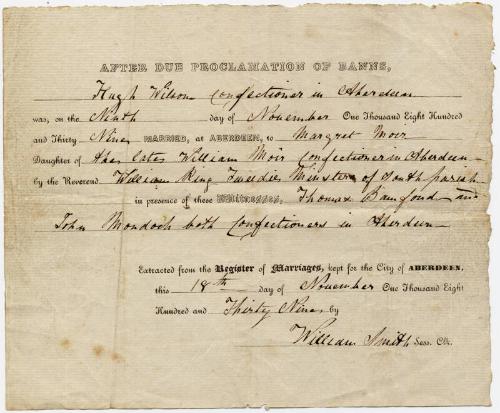 AFTER DUE PROCLAMATION OF BANNS,
Hugh Wilson Confectioner in Aberdeen
was, on the Ninth day of November One Thousand Eight Hundred
and Thirty Nine MARRIED, at ABERDEEN, to Margret Moir
Daughter of the late William Moir Confectioner in Aberdeen
by the Reverend William King Tweedie Minister of South parish
in presence of these WITNESSES, Thomas Bamford and
John Mondoch both Confectioners in Aberdeen
Extracted from the Register of Marriages, kept for the City of ABERDEEN,
this 18th day of November One Thousand Eight
Hundred and Thirty Nine by
William Smith Sess. Clk.